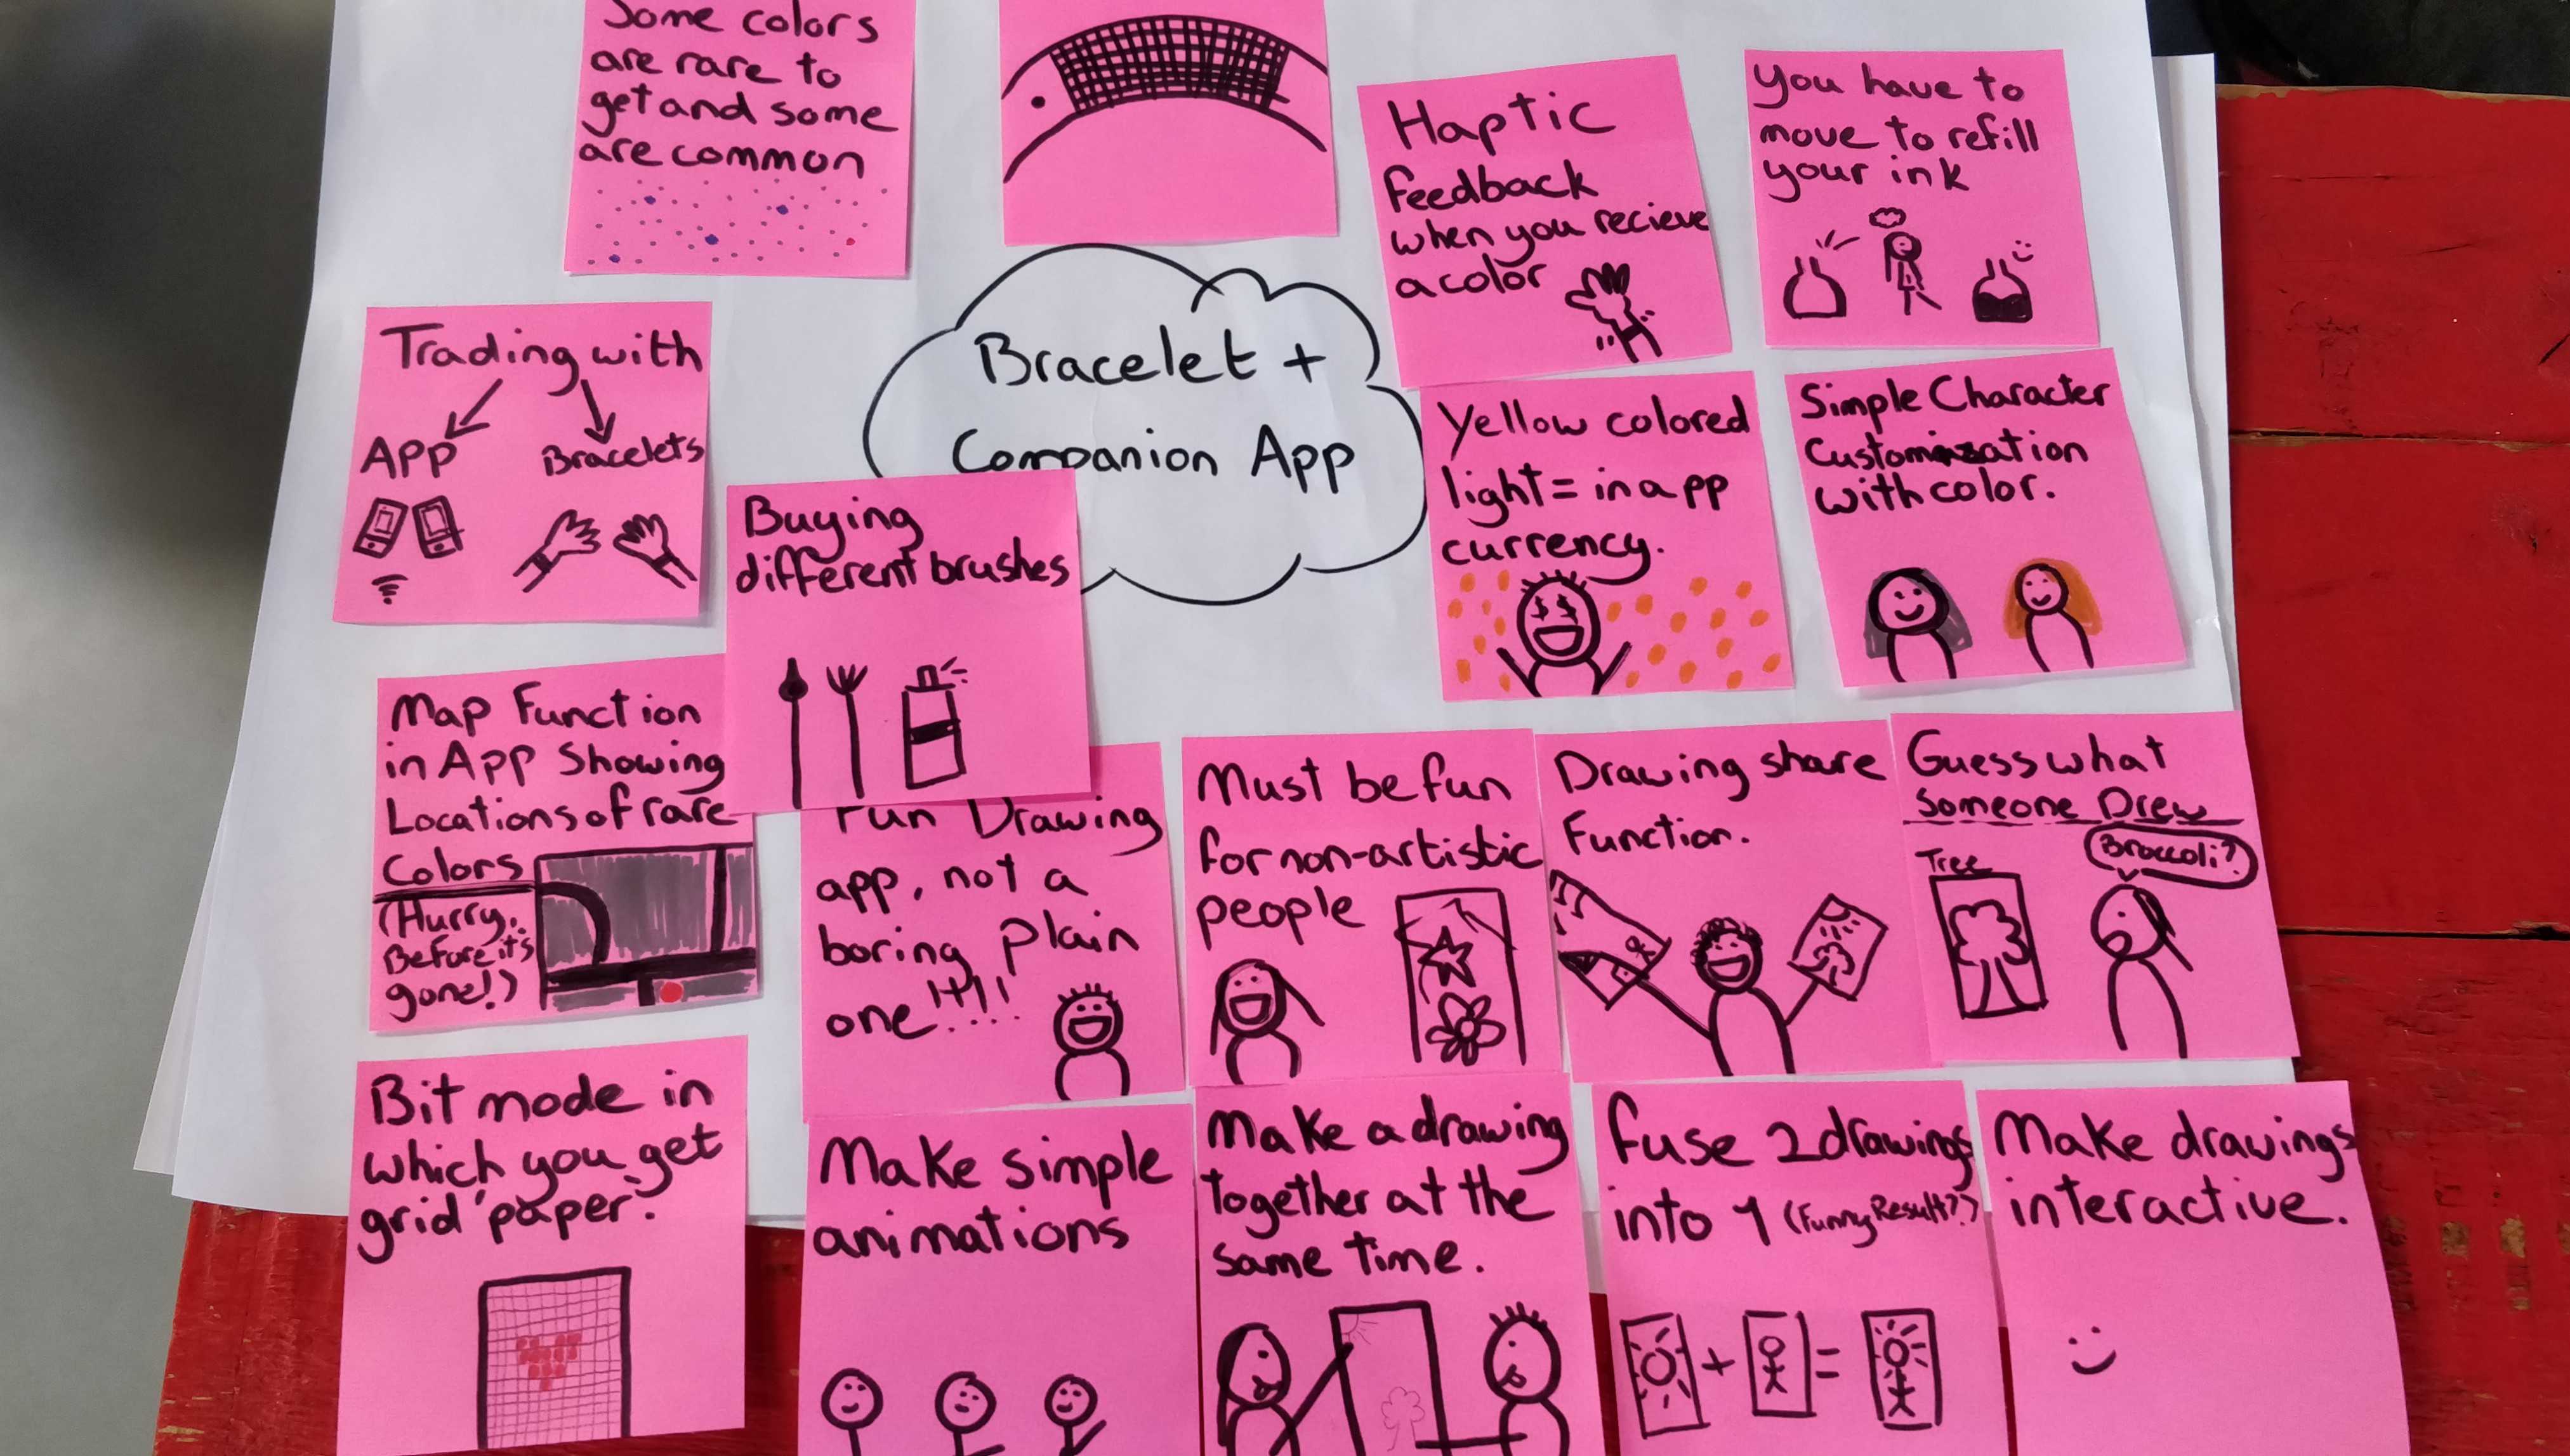 Some colors
are rare to
get and some
are common
Haptic
Feedback
when you recieve
a color
You have to
move to refill
your ink
Trading with
APP
Bracelets
Bracelet +
Companion App
Yellow colored
light = in app
currency.
Simple Character
Customization
with color.
Buying
different brushes
Map Function
in App Showing
Locations of rare
Colors
(Hurry,
Before it's
gone!)
Fun Drawing
app, not a
boring plain
one!!!!
Must be fun
for non-artistic
people
Drawing share
Function.
Guess what
Someone Drew
Tree
Broccoli?
Bit mode in
which you get
grid 'paper'.
Make simple
animations
Make a drawing
together at the
same time.
Fuse 2 drawings
into 1 (Funny Result??)
Make drawings
interactive.